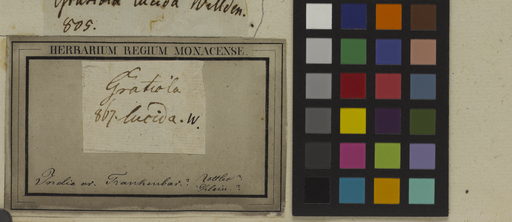 Gratiola lucida Willden.
805.
HERBARIUM REGIUM MONACENSE.
Gratiola
807. lucida. W.
India or. Trankenbar? Rottler?
Klein?